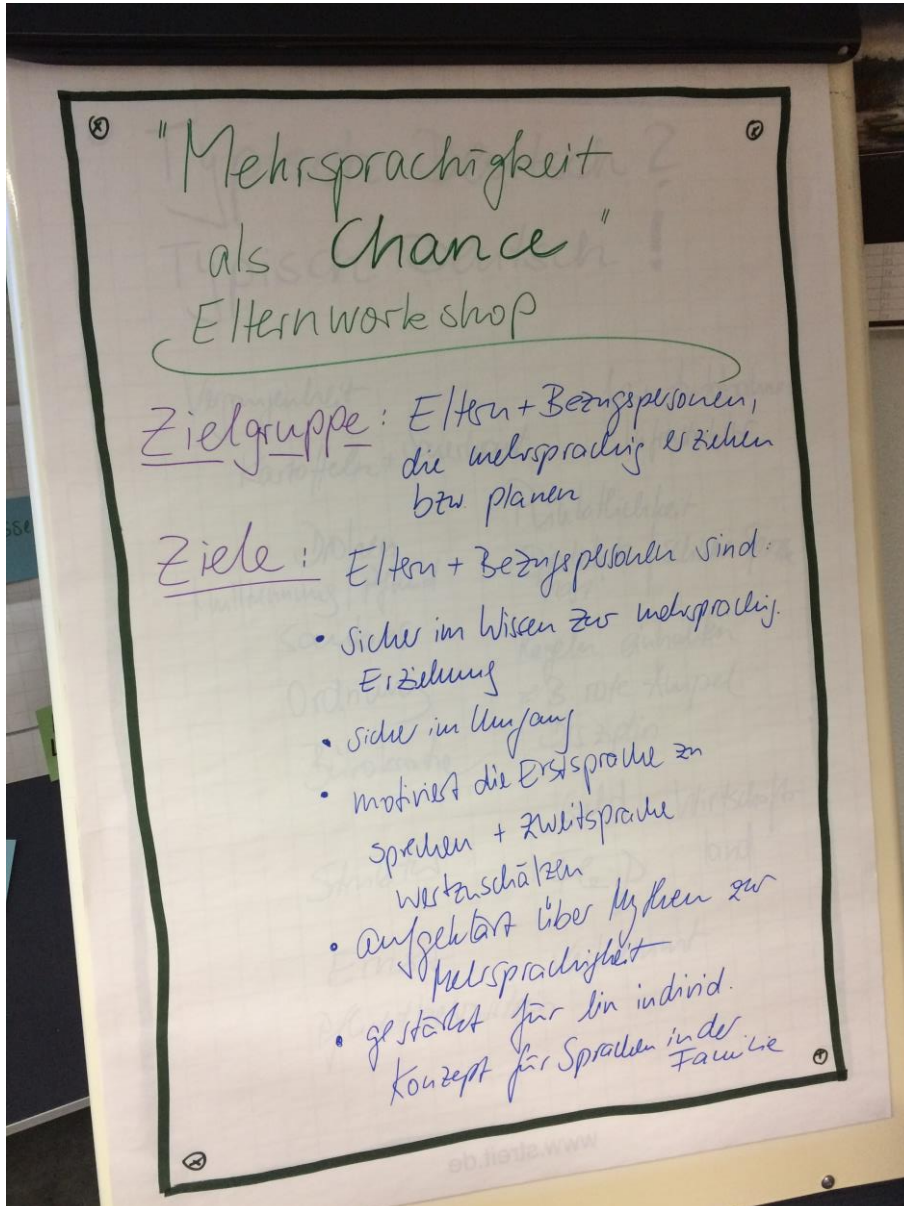 "Mehrsprachigkeit
als Chance"
Elternworkshop
Zielgruppe: Eltern + Bezugspersonen,
die mehrsprachig erziehen
bzw. planen
Ziele: Eltern + Bezugspersonen sind:
• sicher im Wissen zur mehrsprachig.
Erziehung
• sicher im Umgang
• motiviert die Erstsprache zu
sprechen + Zweitsprache
wertzuschätzen
• aufgeklärt über Mythen zur
Mehrsprachigkeit
• gestärkt für ein individ.
Konzept für Sprachen in der
Familie
www.streit.de